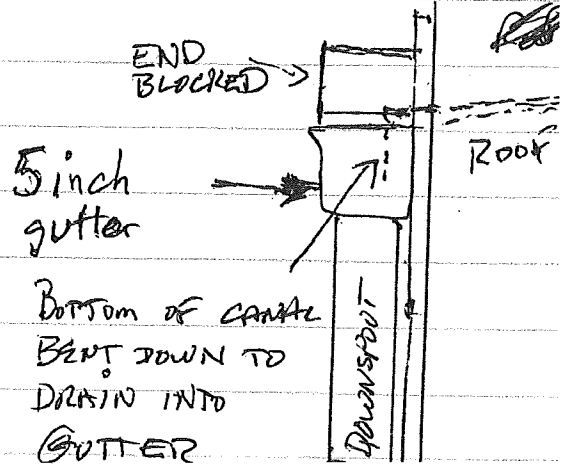 END
BLOCKED
ROOF
5 inch
gutter
BOTTOM OF CANAL
BENT DOWN TO
DRAIN INTO
GUTTER
DOWNSPOUT